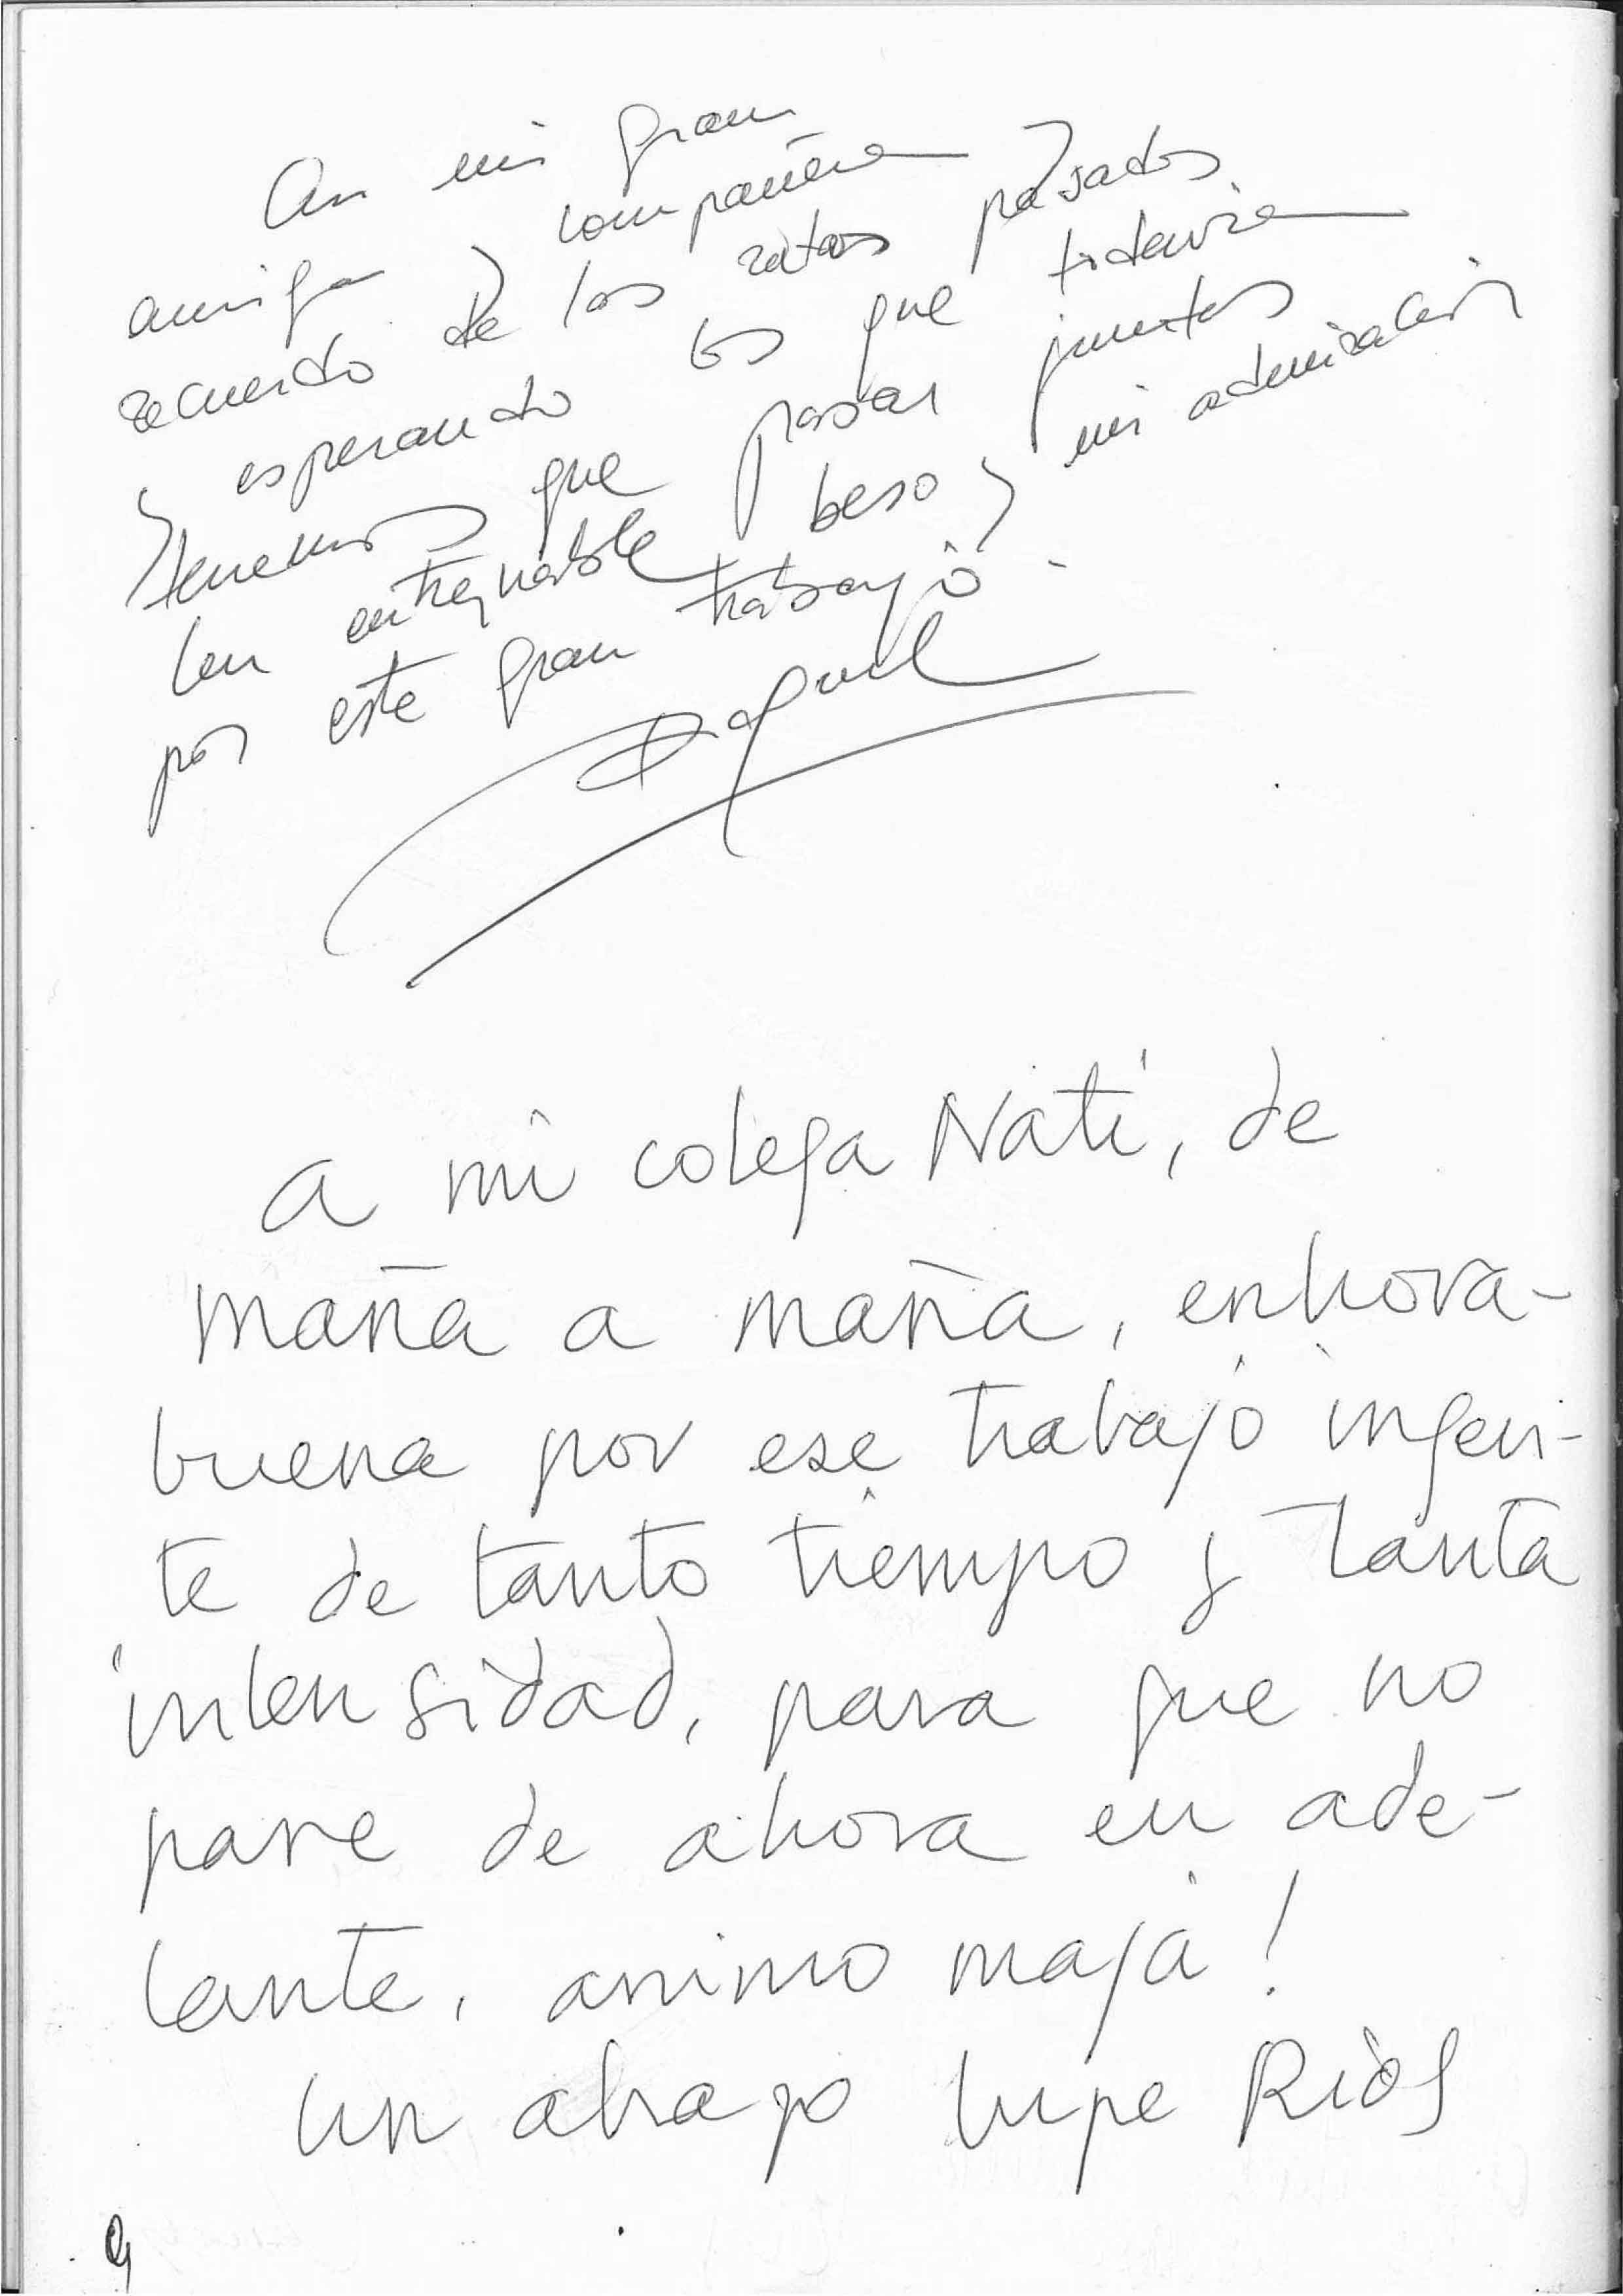 A mi gran
amiga y compañera
recuerdo de los ratos pasados
y esperando los que todavia
tenemos que pasar juntos
Un entrañable beso y mi admiración
por este gran trabajo.
Raquel
a mi colega Nati, de
maña a maña, enhora-
buena por ese trabajo ingen-
te de tanto tiempo y tanta
intensidad, para que no
pare de ahora en ade-
lante, animo maja!
un abrazo Lupe Ríos
9